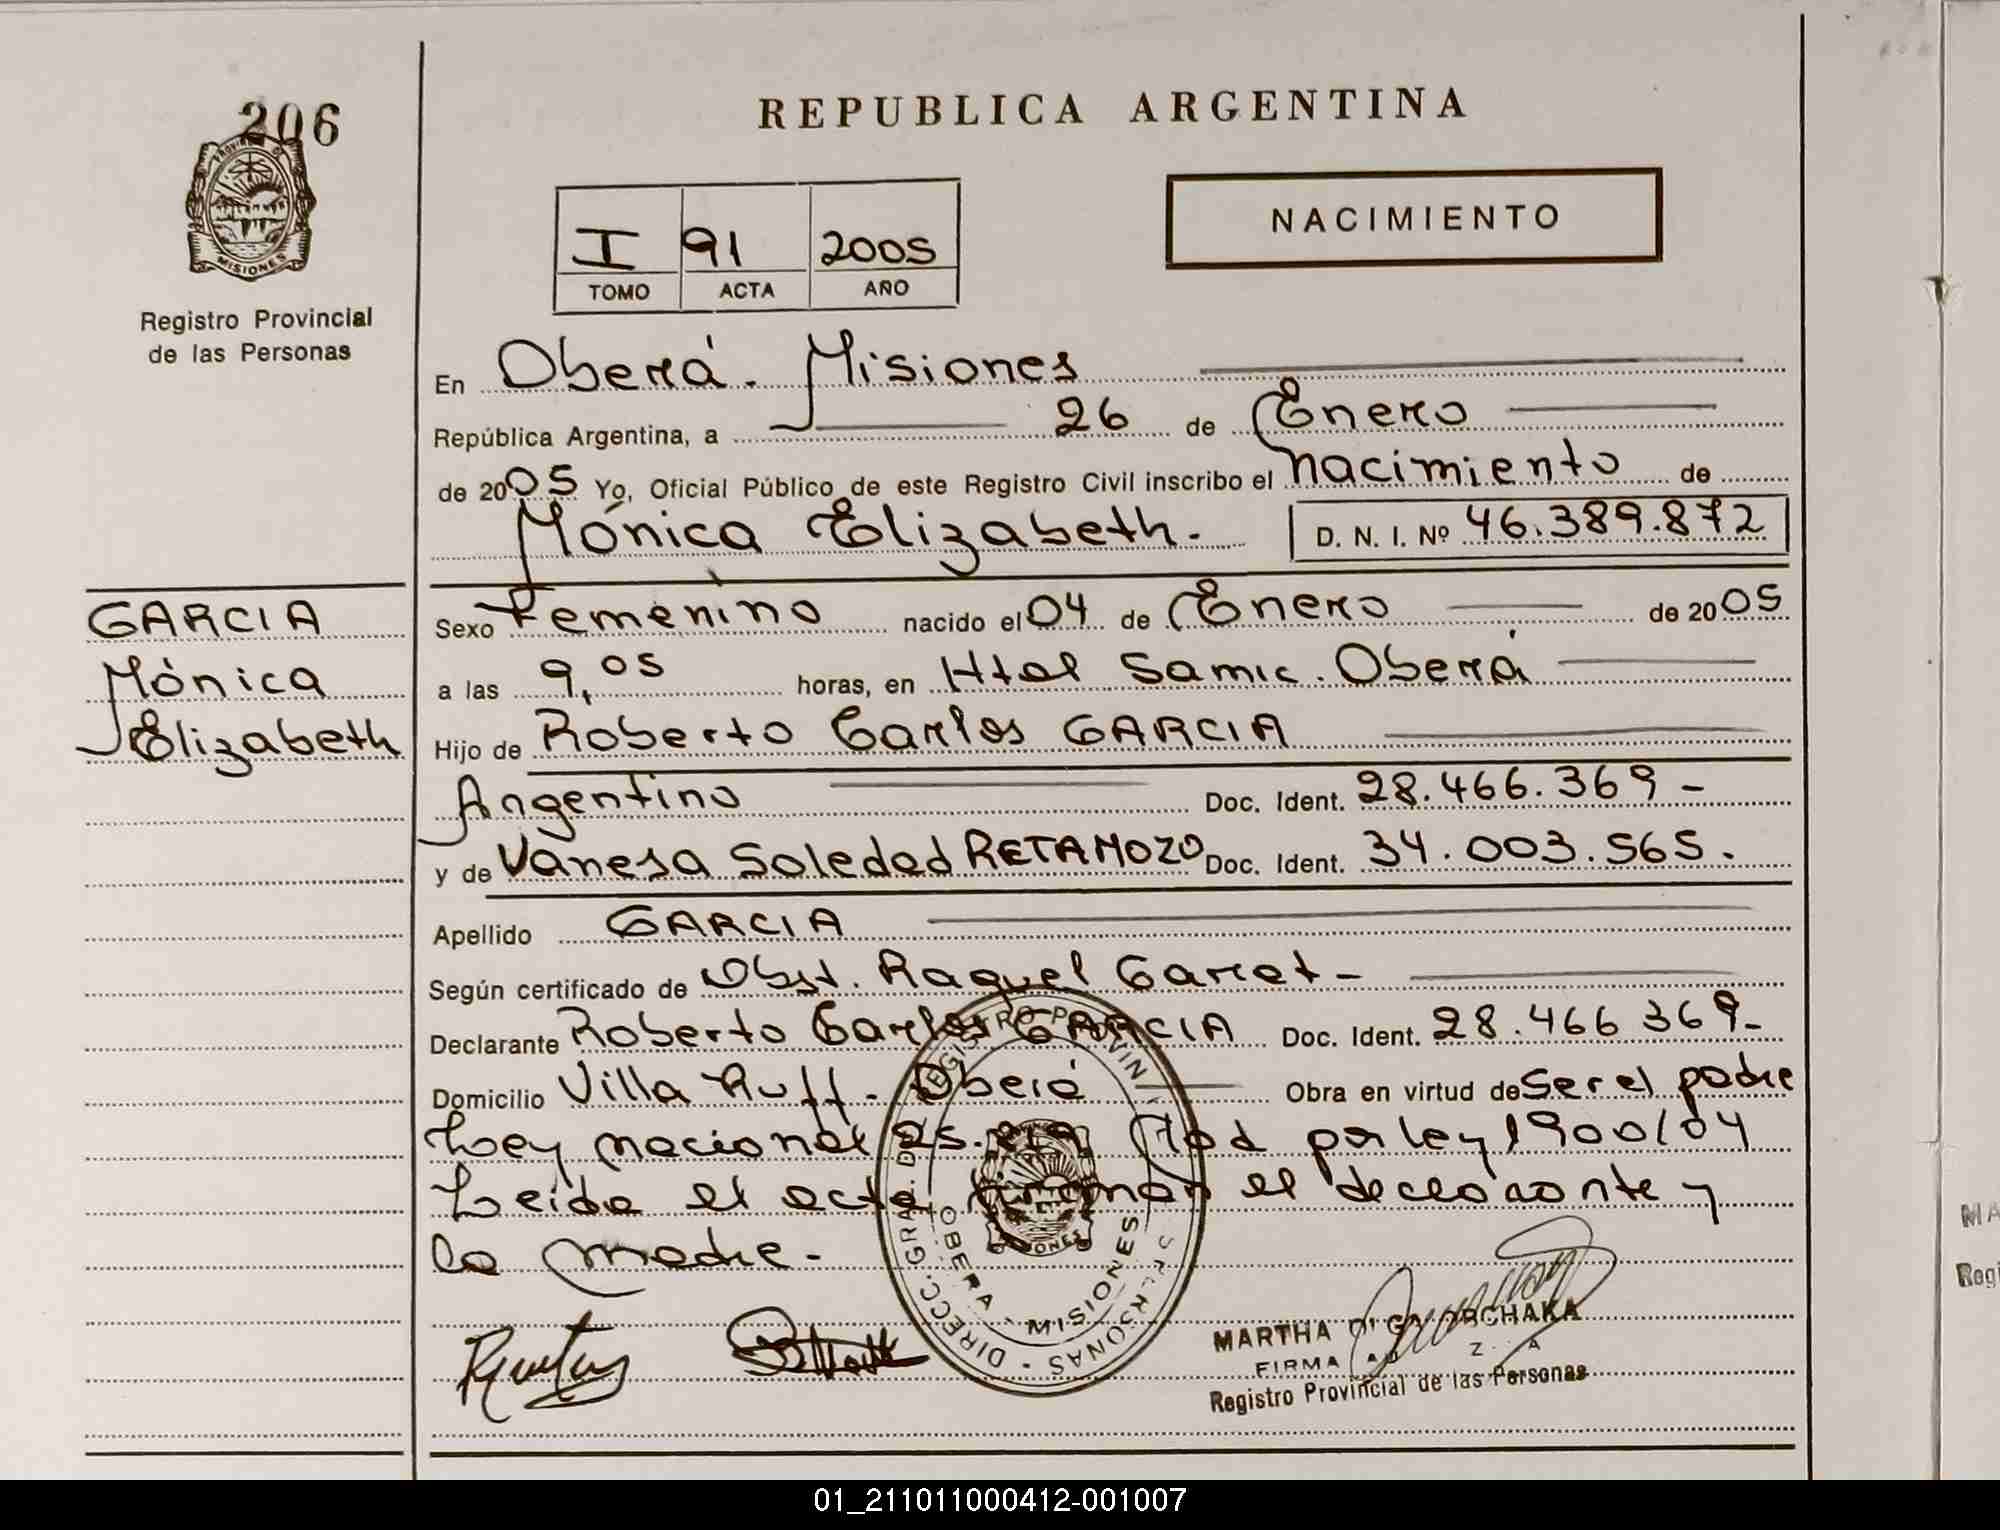 206
MISIONES
Registro Provincial
de las Personas
REPUBLICA ARGENTINA
I 91 2005
TOMO ACTA AÑO
NACIMIENTO
En Oberá. Misiones
República Argentina, a 26 de Enero
de 2005 Yo, Oficial Público de este Registro Civil inscribo el nacimiento de
Mónica Elizabeth. D. N. I. Nº 46.389.872
GARCIA
Mónica
Elizabeth
Sexo Femenino nacido el 04 de Enero de 2005
a las 9,05 horas, en Htal Samic. Oberá
Hijo de Roberto Carlos GARCIA
Argentino Doc. Ident. 28.466.369 -
y de Vanesa Soledad RETAMOZO Doc. Ident. 34.003.565.
Apellido GARCIA
Según certificado de Obst. Raquel -
Declarante Roberto Carlos GARCIA Doc. Ident. 28.466 369-
Domicilio Villa Ruff - Oberá Obra en virtud de Ser el padre
Ley nacional por ley 1900/04
Leida el acta firman el declarante y
la madre -
DIRECC. GRAL. DEL REGISTRO PROVIN PERSONAS
OBERA MISIONES
MARTHA ORCHAKA
FIRMA
Registro Provincial de las Personas
MA
Regi
01_211011000412-001007